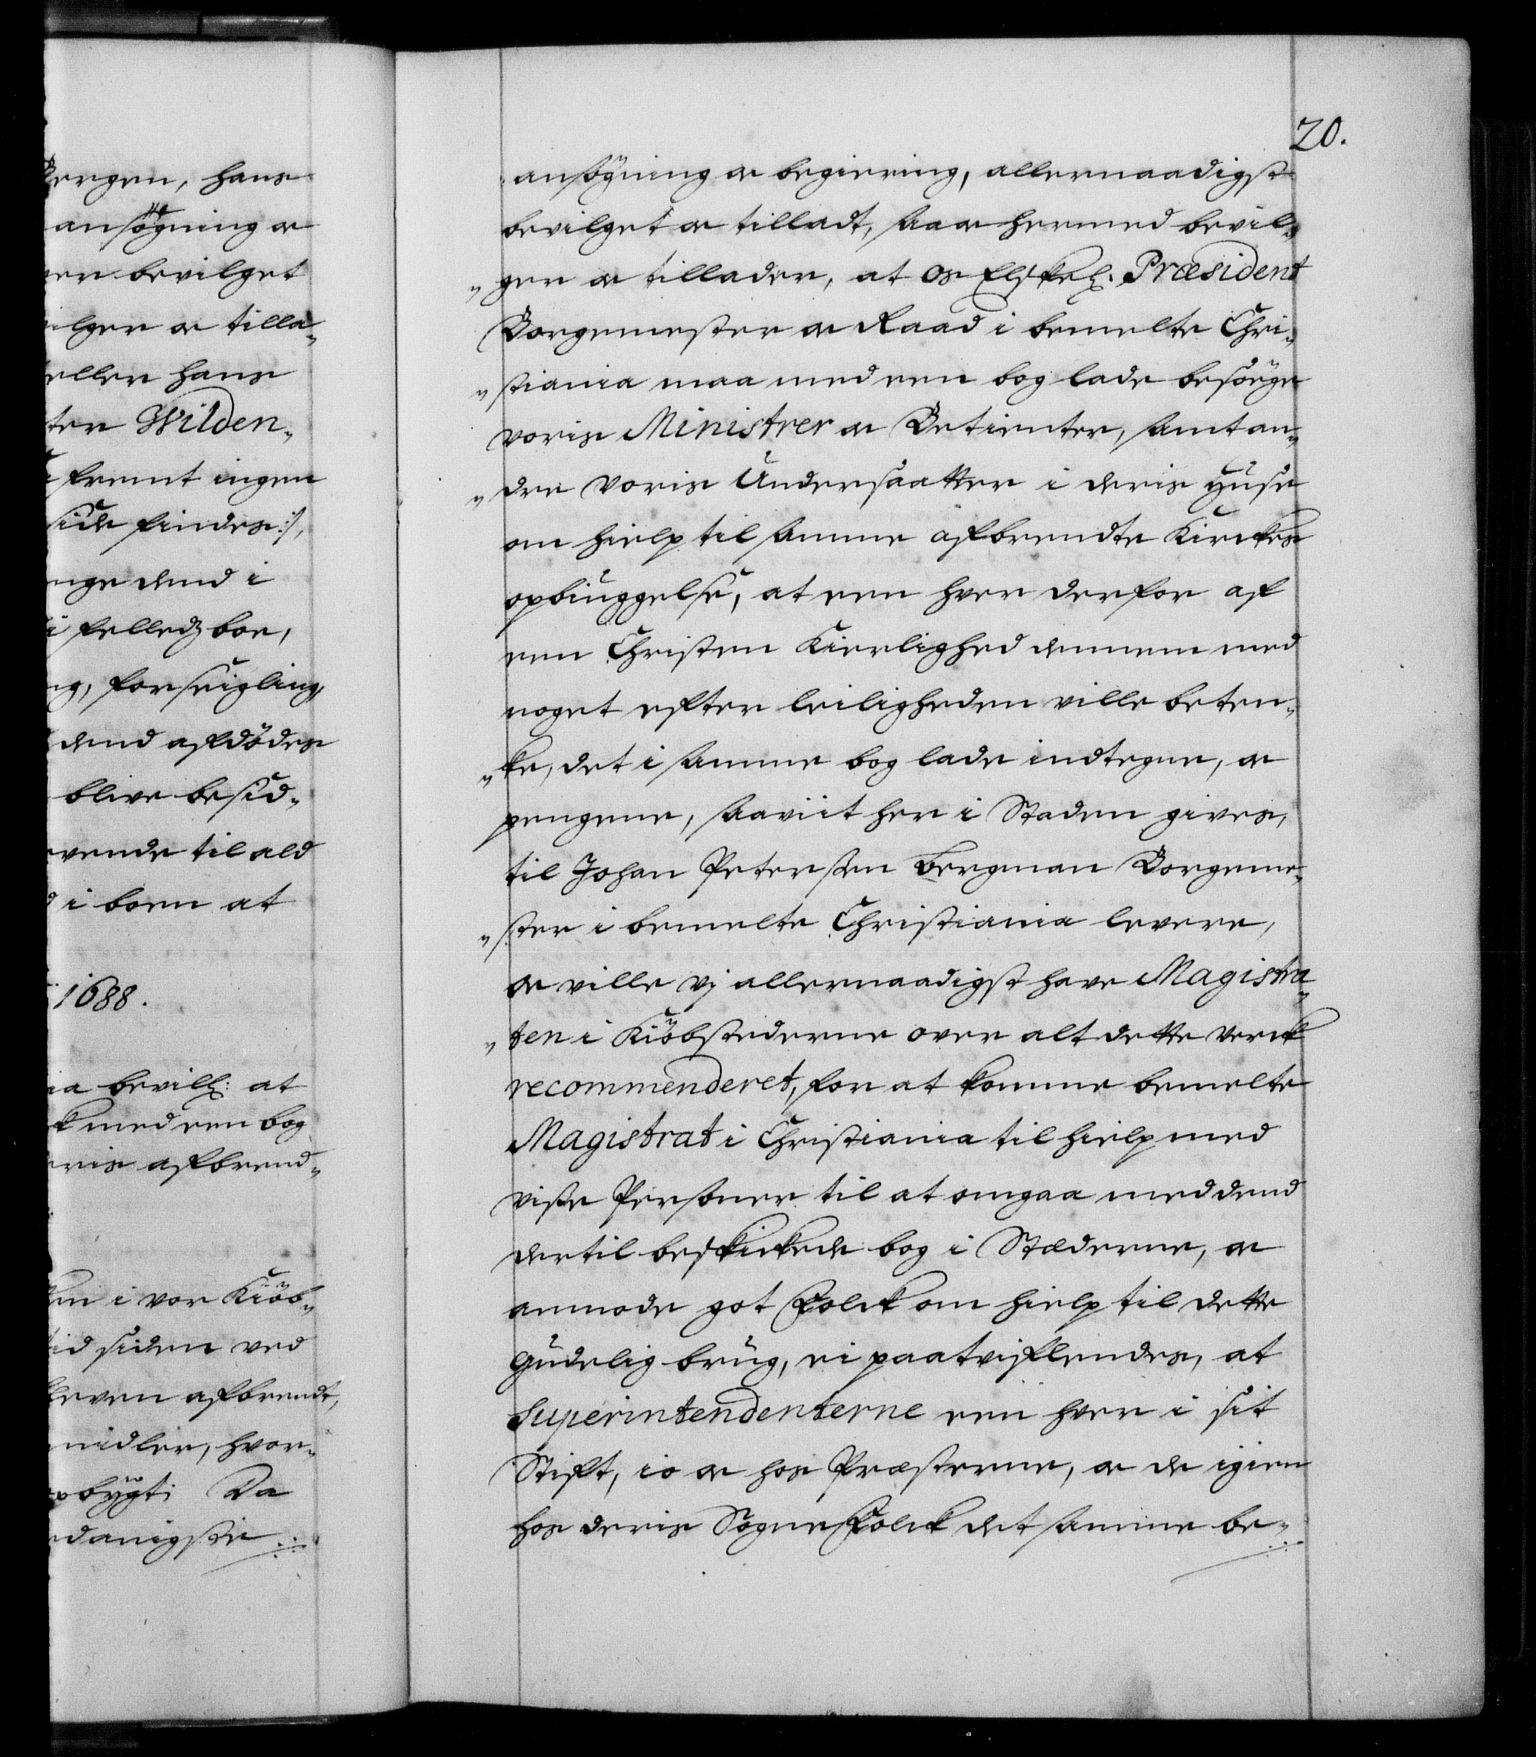 Bergen, hans
ansøgning og
bevilget
og tilla-
eller hans
Wilden-
fremt ingen
findes:/,
dend i
i felledz boe,
forseigling,
dend afdødes
blive besid-
til ald
i boen at
1688.
bevill: at
med een bog
afbrend-
i vor Kiøb-
siden ved
afbrendt,
midler, hvor-
Da
20.
ansøgning og begiering, allernaadigst
bevilget og tilladt, saa og hermed bevil-
ger og tillader, at os Elskel: Præsident
Borgemester og Raad i bemelte Chri-
stiania maa med een bog lade besøge
voris Ministrer og Betienter, samt an-
dre voris Undersaatter i deris Huse
om hielp til samme afbrendte Kirckes
opbiuggelse, at een hver derfor af
een Christen Kierlighed dennem med
noget efter leiligheden ville beten-
ke, det i samme bog lade indtegne, og
pengene, saaviit her i Staden gives,
til Johan Petersen Bergman Borgeme-
ster i bemelte Christiania levere,
og ville vj allernaadigst have Magistra-
ten i Kiøbstederne over alt dette verck
recommenderet, for at komme bemelte
Magistrat i Christiania til hielp med
visse Personer til at omgaa med dend
dertil beskickede bog i Stæderne, og
anmode got Folck om hielp til dette
Gudelig brug, ei paatviflendes, at
Superintendenterne een hver i sit
Stift, io og hos Præsterne, og de igien
hos deris SogneFolck det samme be-